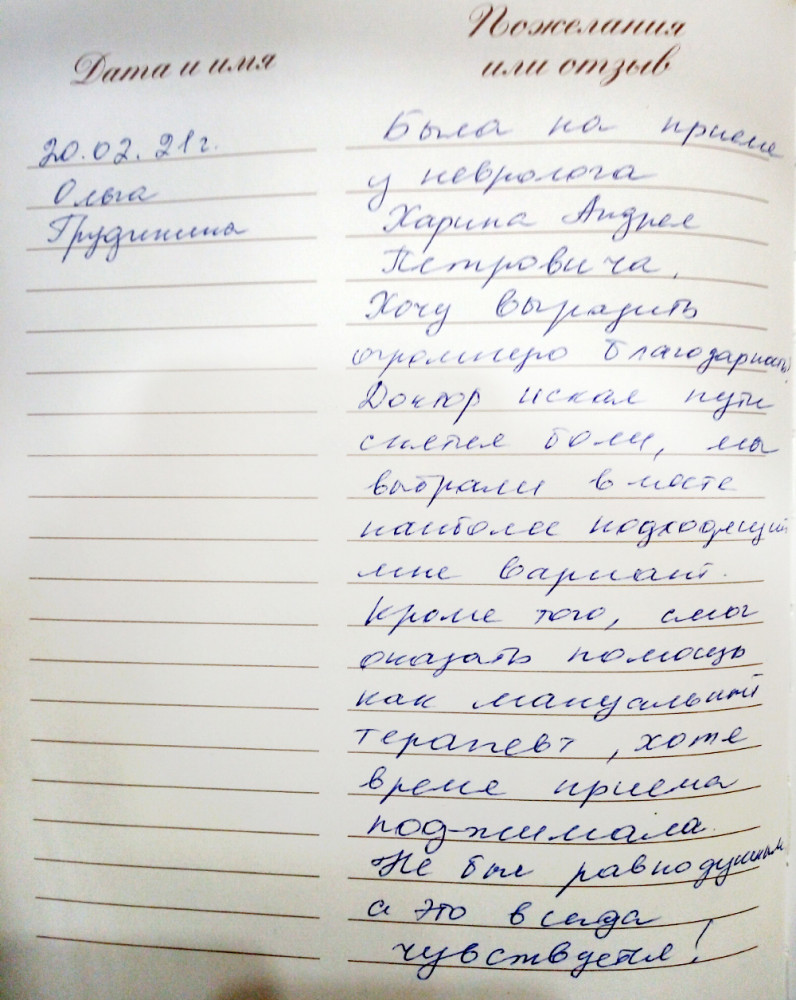 Дата и имя
Пожелания
или отзыв
20.02.21г.
Ольга
Грудинина
Была на приеме
у невролога
Харина Андрея
Петровича.
Хочу выразить
огромную благодарность!
Доктор искал пути
снятия боли, мы
выбрали вместе
наиболее подходящий
мне вариант.
Кроме того, смог
оказать помощь
как мануальный
терапевт, хотя
время приема
поджимало.
Не был равнодушным
а это всегда
чувствуется!